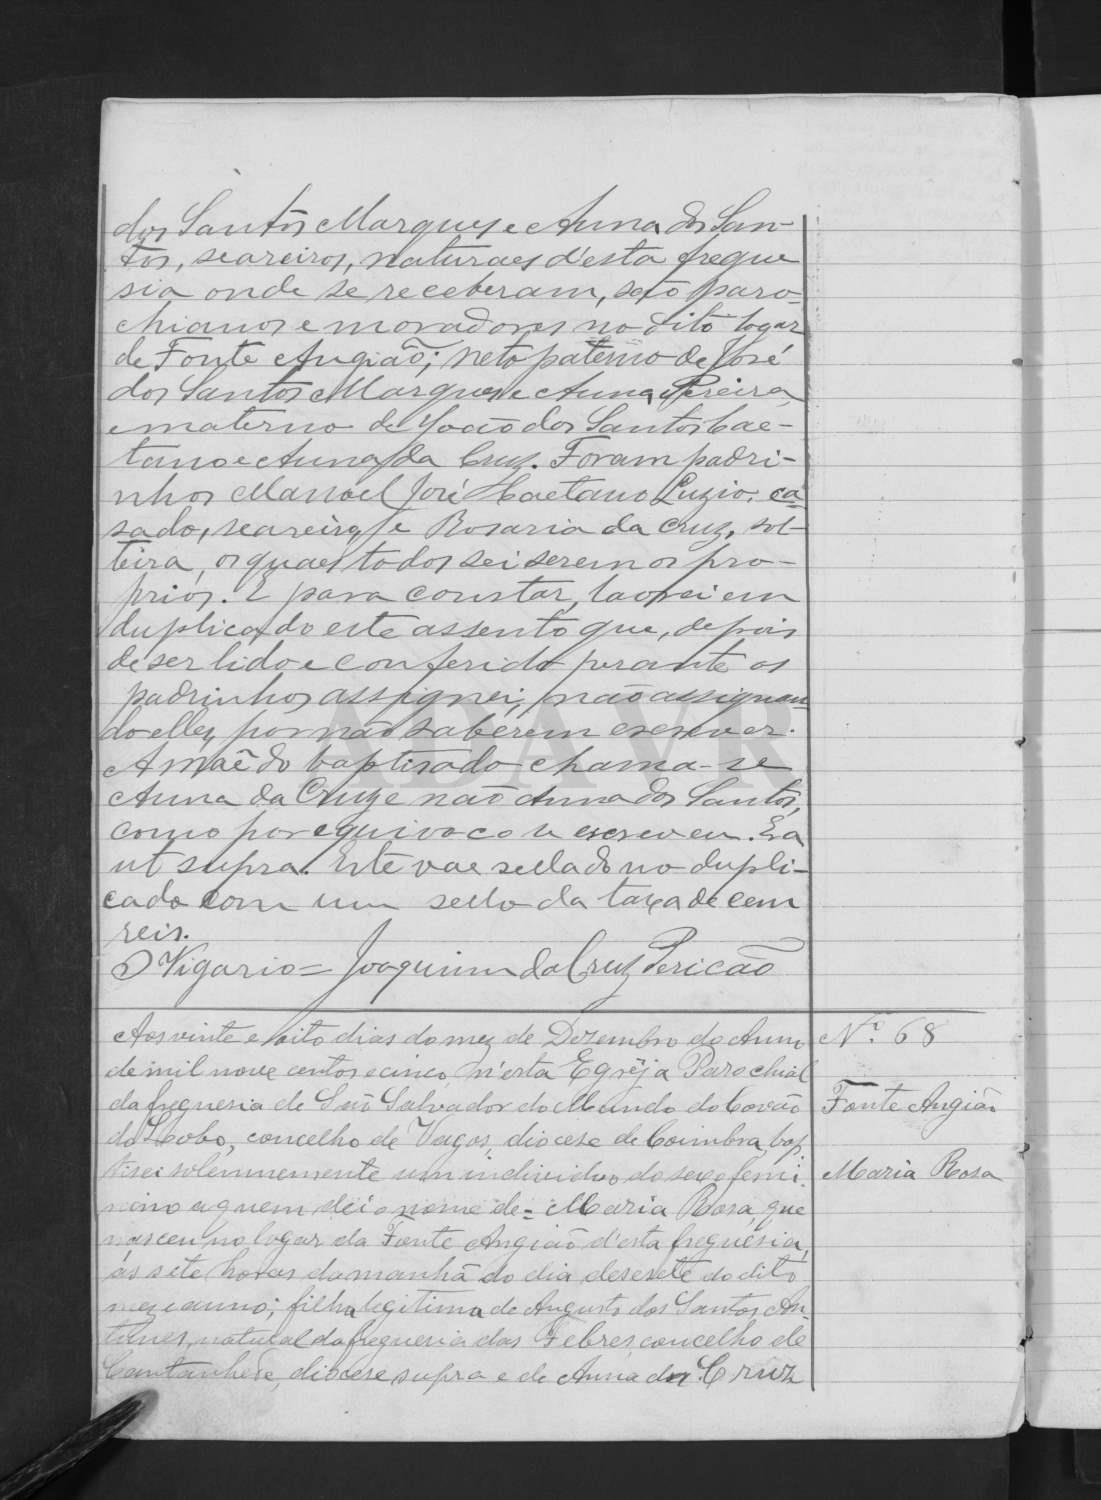 dos Santos Marques e Anna dos San-
tos, seareiros, naturaes d'esta fregue
sia onde se receberam, são paro-
chianos e moradores no dito logar
de Fonte Angião; neto paterno de José
dos Santos Marques e Anna Pereira,
e materno de João dos Santos Cae-
tano e Anna da Cruz. Foram padri-
nhos Manoel José Caetano Luzio, ca
sado, seareiro, e Rosaria da Cruz, sol-
teira, os quaes todos sei serem os pro-
prios. E para constar, lavrei em
duplicado este assento que, depois
de ser lido e conferido perante os
padrinhos assignei, não assignan-
do elles, por não saberem escrever.
A mãe do baptisado chama-se
Anna da Cruz e não Anna dos Santos,
como por equivoco se escreveu. Era
ut supra. Este vae sellado no dupli-
cado com um sello da taxa de cem
reis.
O Vigario = Joaquim da Cruz Pericão
Aos vinte e oito dias do mez de Dezembro do Anno
de mil nove centos e cinco, n'esta Egreja Parochial
da freguesia de São Salvador do Mundo do Covão
do Lobo, concelho de Vagos, diocese de Coimbra, bap
tisei solemnemente um individuo do sexo femi
nino a quem dei o nome de = Maria Rosa, que
nasceu no logar da Fonte Angião d'esta freguesia,
ás sete horas da manhã do dia desesete do dito
mez e anno; filha legitima de Augusto dos Santos An
tunes, natural da freguesia das Febres, concelho de
Cantanhede, diocese supra e de Anna da Cruz
Nº 68
Fonte Angião
Maria Rosa
ADAVR